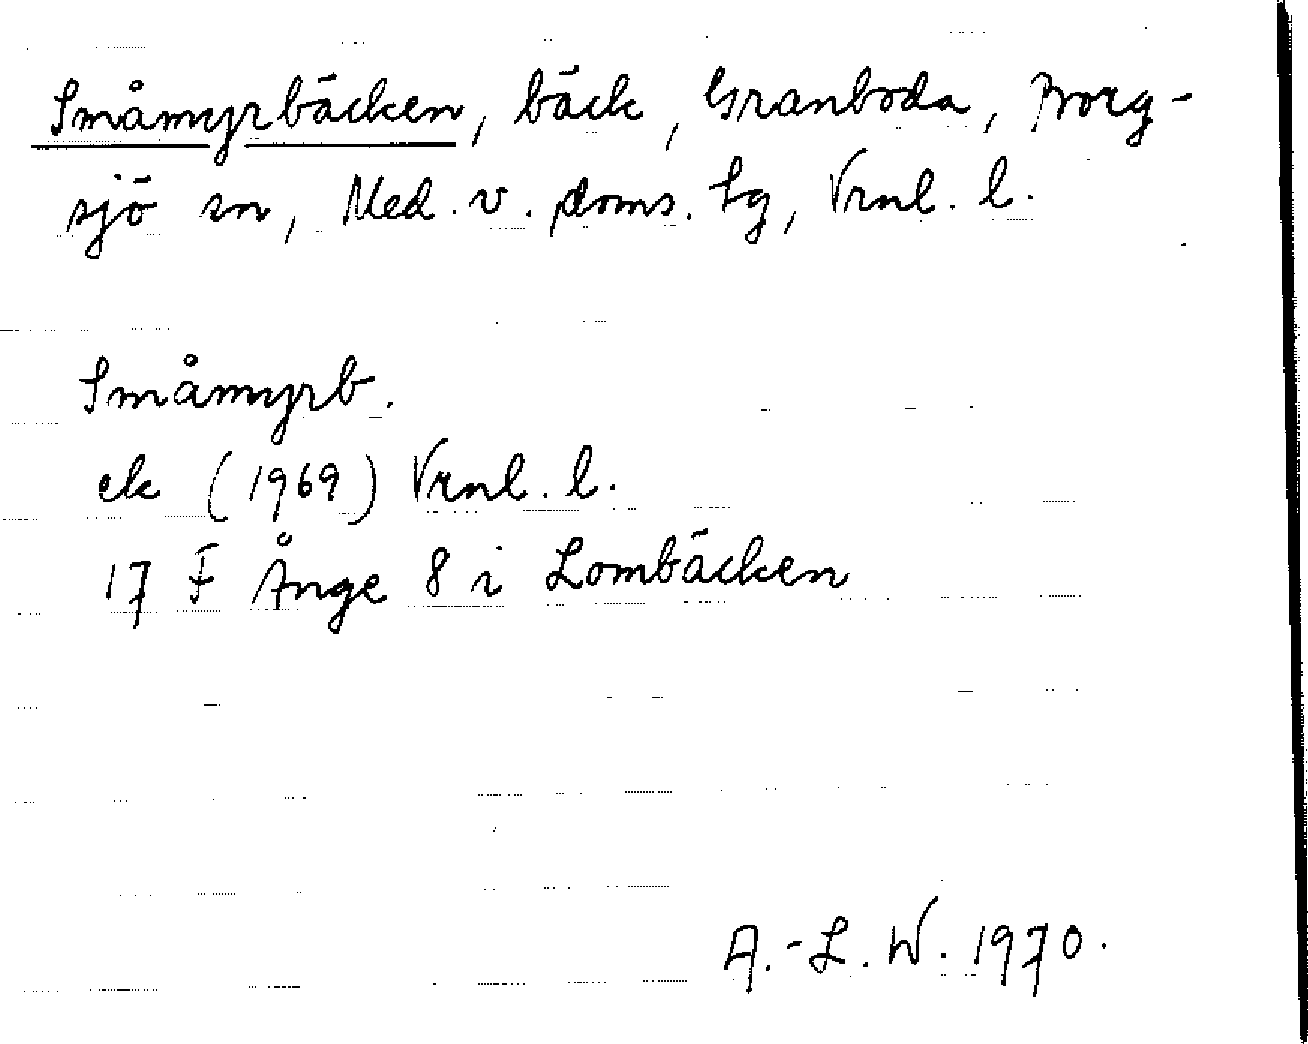 Småmyrbäcken, bäck, Granboda, Borg-
sjö sn, Med. v. doms. tg, Vrnl. l.
Småmyrb.
ek (1969) Vrnl. l.
17 F Ånge 8 i Lombäcken
A.-L. W. 1970.